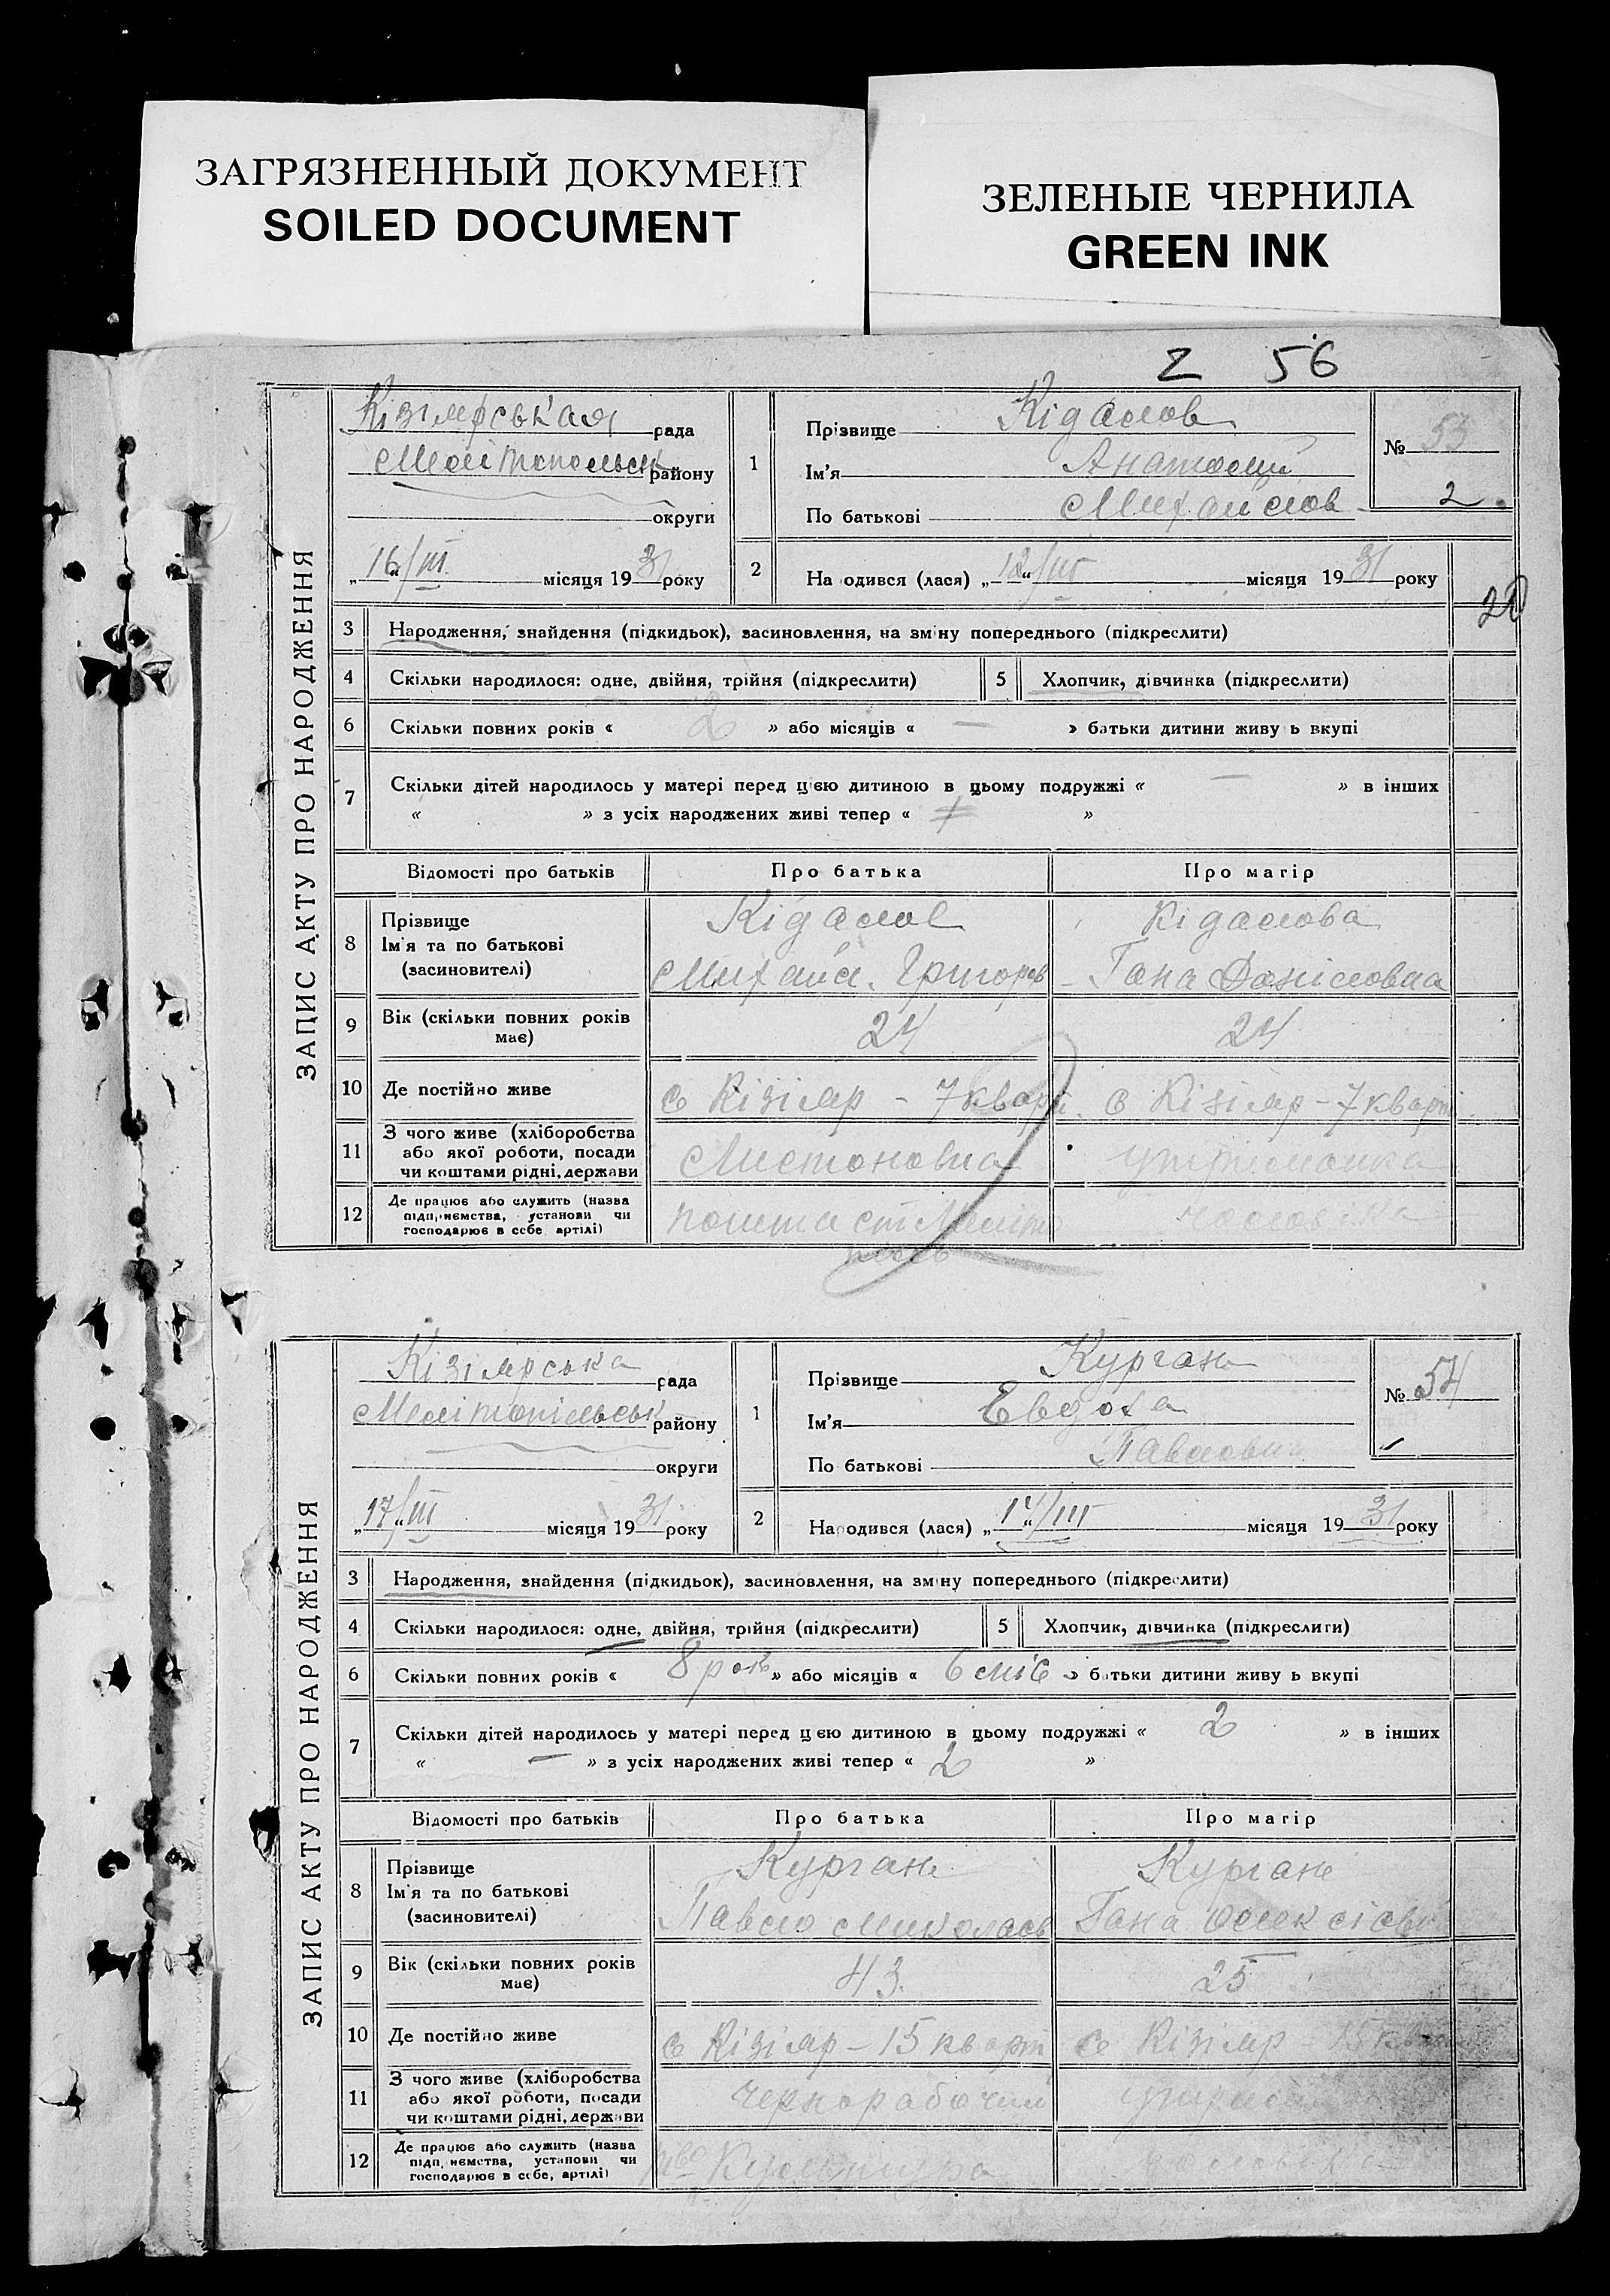 ЗАГРЯЗНЕННЫЙ ДОКУМЕНТ
SOILED DOCUMENT
ЗЕЛЕНЫЕ ЧЕРНИЛА
GREEN INK
2 56
ЗАПИС АКТУ ПРО НАРОДЖЕННЯ
Кізіярськая рада
Мелітопольськ району
округи
„16“/III місяця 1931 року
1 Прізвище Кідалов
Ім'я Анатолий
По батькові Михайлов
№ 53
2
2 На одився (лася) „12“/III місяця 1931 року
3 Народження, знайдення (підкидьок), засиновлення, на зміну попереднього (підкреслити)
4 Скільки народилося: одне, двійня, трійня (підкреслити) 5 Хлопчик, дівчинка (підкреслити)
6 Скільки повних років « 2 » або місяців « — » батьки дитини живу ь вкупі
7 Скільки дітей народилось у матері перед цією дитиною в цьому подружжі « — » в інших
« » з усіх народжених живі тепер « »
Відомості про батьків Про батька Про матір
8 Прізвище Кідалов Кідалова
Ім'я та по батькові
(засиновителі) Михайл. Григоров Гана Данііловна
9 Вік (скільки повних років має) 24 24
10 Де постійно живе с Кізіяр - 7 кварт. с Кізіяр - 7 кварт.
11 З чого живе (хліборобства або якої роботи, посади чи коштами рідні, держави Листоновна утриманка
12 Де працює або служить (назва підприємства, установи чи господарює в себе, артілі) пошта ст Меліто поль чоловіка
ЗАПИС АКТУ ПРО НАРОДЖЕННЯ
Кізіярська рада
Мелітопільськ району
округи
„17“/III місяця 1931 року
1 Прізвище Курган
Ім'я Евдоха
По батькові Павловн
№ 54
2 Народився (лася) „14“/III місяця 1931 року
3 Народження, знайдення (підкидьок), засиновлення, на зміну попереднього (підкреслити)
4 Скільки народилося: одне, двійня, трійня (підкреслити) 5 Хлопчик, дівчинка (підкреслити)
6 Скільки повних років « 8 рок » або місяців « 6 міс » батьки дитини живу ь вкупі
7 Скільки дітей народилось у матері перед цією дитиною в цьому подружжі « 2 » в інших
« — » з усіх народжених живі тепер « 2 »
Відомості про батьків Про батька Про матір
8 Прізвище Курган Курган
Ім'я та по батькові
(засиновителі) Павло Миколаєв Гана Олексіевн
9 Вік (скільки повних років має) 43. 25
10 Де постійно живе с Кізіяр - 15 кварт с Кізіяр - 15 кварт
11 З чого живе (хліборобства або якої роботи, посади чи коштами рідні, держави Чернорабочий
12 Де працює або служить (назва підприємства, установи чи господарює в себе, артілі)